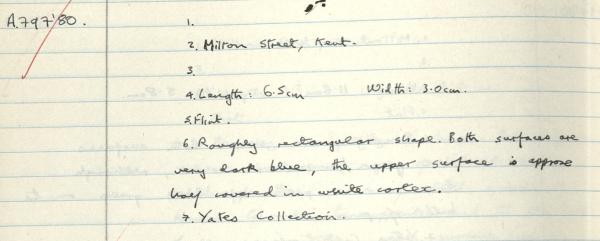 A.797'80.
1.
2. Milton Street, Kent.
3.
4. Length: 6.5cm Width: 3.0cm.
5. Flint.
6. Roughly rectangular shape. Both surfaces are
very dark blue, the upper surface is approx
half covered in white cortex.
7. Yates Collection.